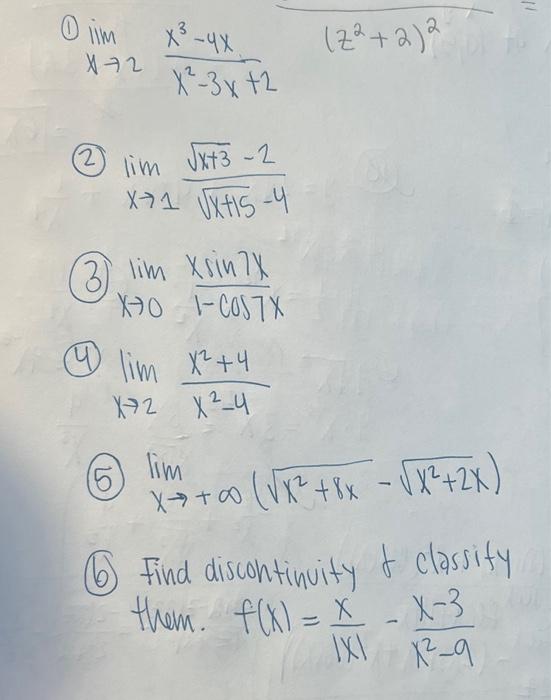 ① lim x→2 (x³-4x)/(x²-3x+2)
(z²+2)² =
② lim x→1 (√(x+3) - 2)/(√(x+15) - 4)
③ lim x→0 (x sin7x)/(1-cos7x)
④ lim x→2 (x²+4)/(x²-4)
⑤ lim x→+∞ (√(x²+8x) - √(x²+2x))
⑥ Find discontinuity & classify
them. f(x) = x/|x| - (x-3)/(x²-9)